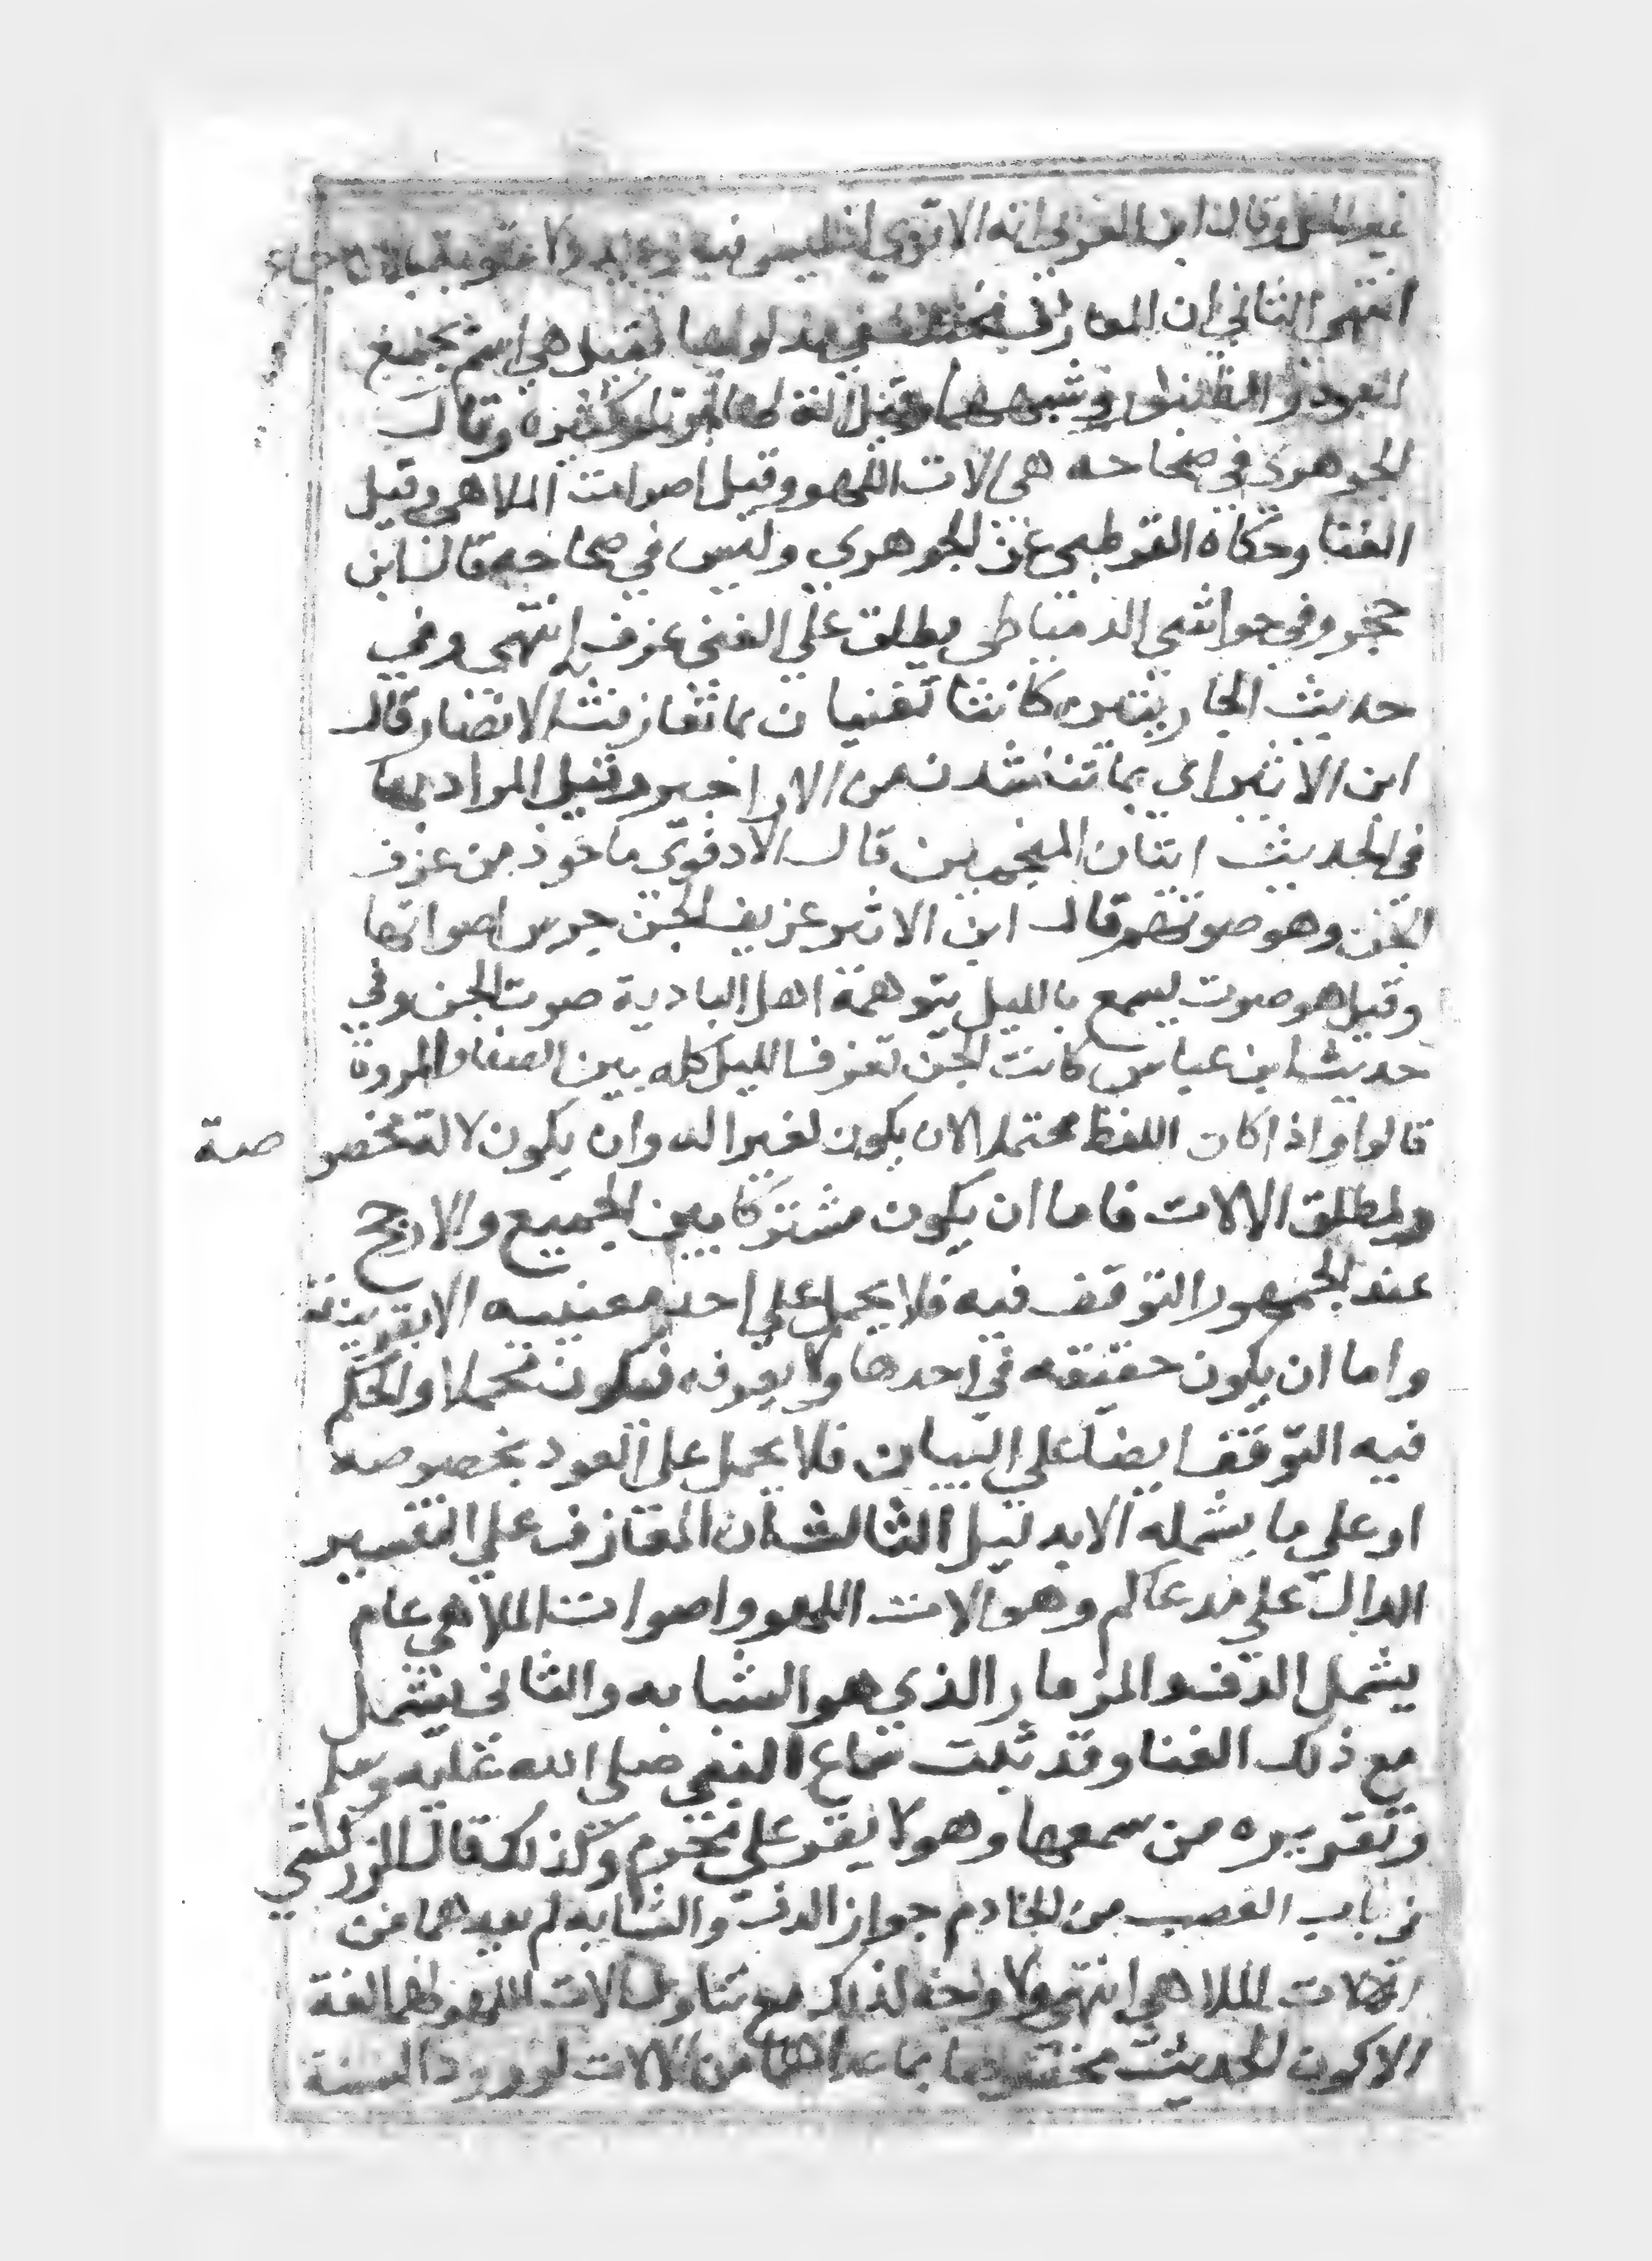 وقال ابن العربي انه الاقوي اذ ليس فيه
انتهى الثاني ان المعازف مختلف في مدلولها فقيل هي اسم يجمع
العود و الطنبور وشبههما وقيل وقال
الجوهري في صحاحه هي الات اللهو وقيل اصوات الملاهي وقيل
الغنا وحكاه القرطبي عن الجوهري وليس في صحاحه قال ابن
حجر وفي حواشي الدمياطي يطلق علي الغنى عزف انتهى وفي
حديث الجاريتين كانتا تغنيان بما تغازفت الانصار قال
ابن الاثير اى بما تناشدت من الاراجيز وقيل المراد بها
في الحديث اتيان المنجمين قال الادفوى ماخوذ من عزف
الجن وهو صوتهم قال ابن الاثير عزيف الجن جرس اصواتها
وقيل هو صوت يسمع بالليل يتوهمه اهل البادية صوت الجن وفي
حديث ابن عباس كانت الجن تعزف الليل كله بين الصفا والمروة
قالوا واذا كان اللفظ محتملا لان يكون لغير اله وان يكون لالة مخصوصة
ولمطلق الالات فاما ان يكون مشتركا بين الجميع والارجح
عند الجمهور التوقف فيه فلا يحمل علي احد معنييه الا بقرينة
واما ان يكون حقيقه في احدها ولا يعرفه فيكون مجملا والحكم
فيه التوقف ايضا علي البيان فلا يحمل على العود بخصوصه
او علي ما يشمله الا بدليل الثالث ان المعازف علي التفسير
الدال علي مدعاكم وهو الات اللهو واصوات الملاهي عام
يشمل الدف والمزمار الذي هو الشبابه والثانى يشمل
مع ذلك الغنا وقد ثبت سماع النبي صلى الله عليه وسلم
وتقريره من سمعها وهو لا يقر علي محرم وكذلك قال الزركشي
في باب الغصب من الخادم جواز الدف والشبابه لم يعدهما من
الات الملاهي انتهى ولا وجه لذلك مع تناول الات اللهو لهما لغة
الا كون الحديث مخصوصا بما عداهما من الالات لورود السنة